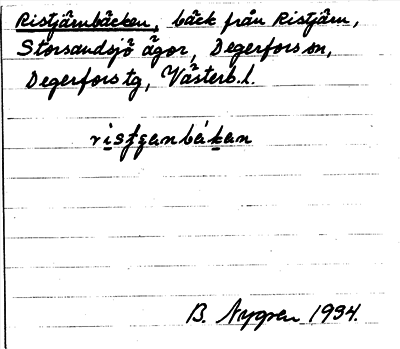 Ristjärnbäcken, bäck från Ristjärn,
Storsandsjö ägor, Degerfors sn,
Degerfors tg, Västerb. l.
B. Nygren 1934.